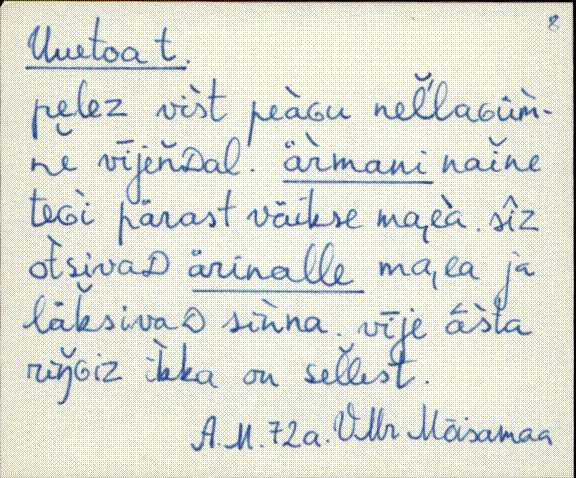 8
Uuetoa t.
pelez vìst peàGu neľlaGüm̀-
ne vījeňDal. ä̀rmani naǐne
teGì pärast väikse ma,eà. sîz
òtsivaD ärinalle ma,ea ja
läksivaD siǹna. vīje âs̀ta
rīŋGiz ìkka on sellest.
A.M. 72a. VMr Mõisamaa